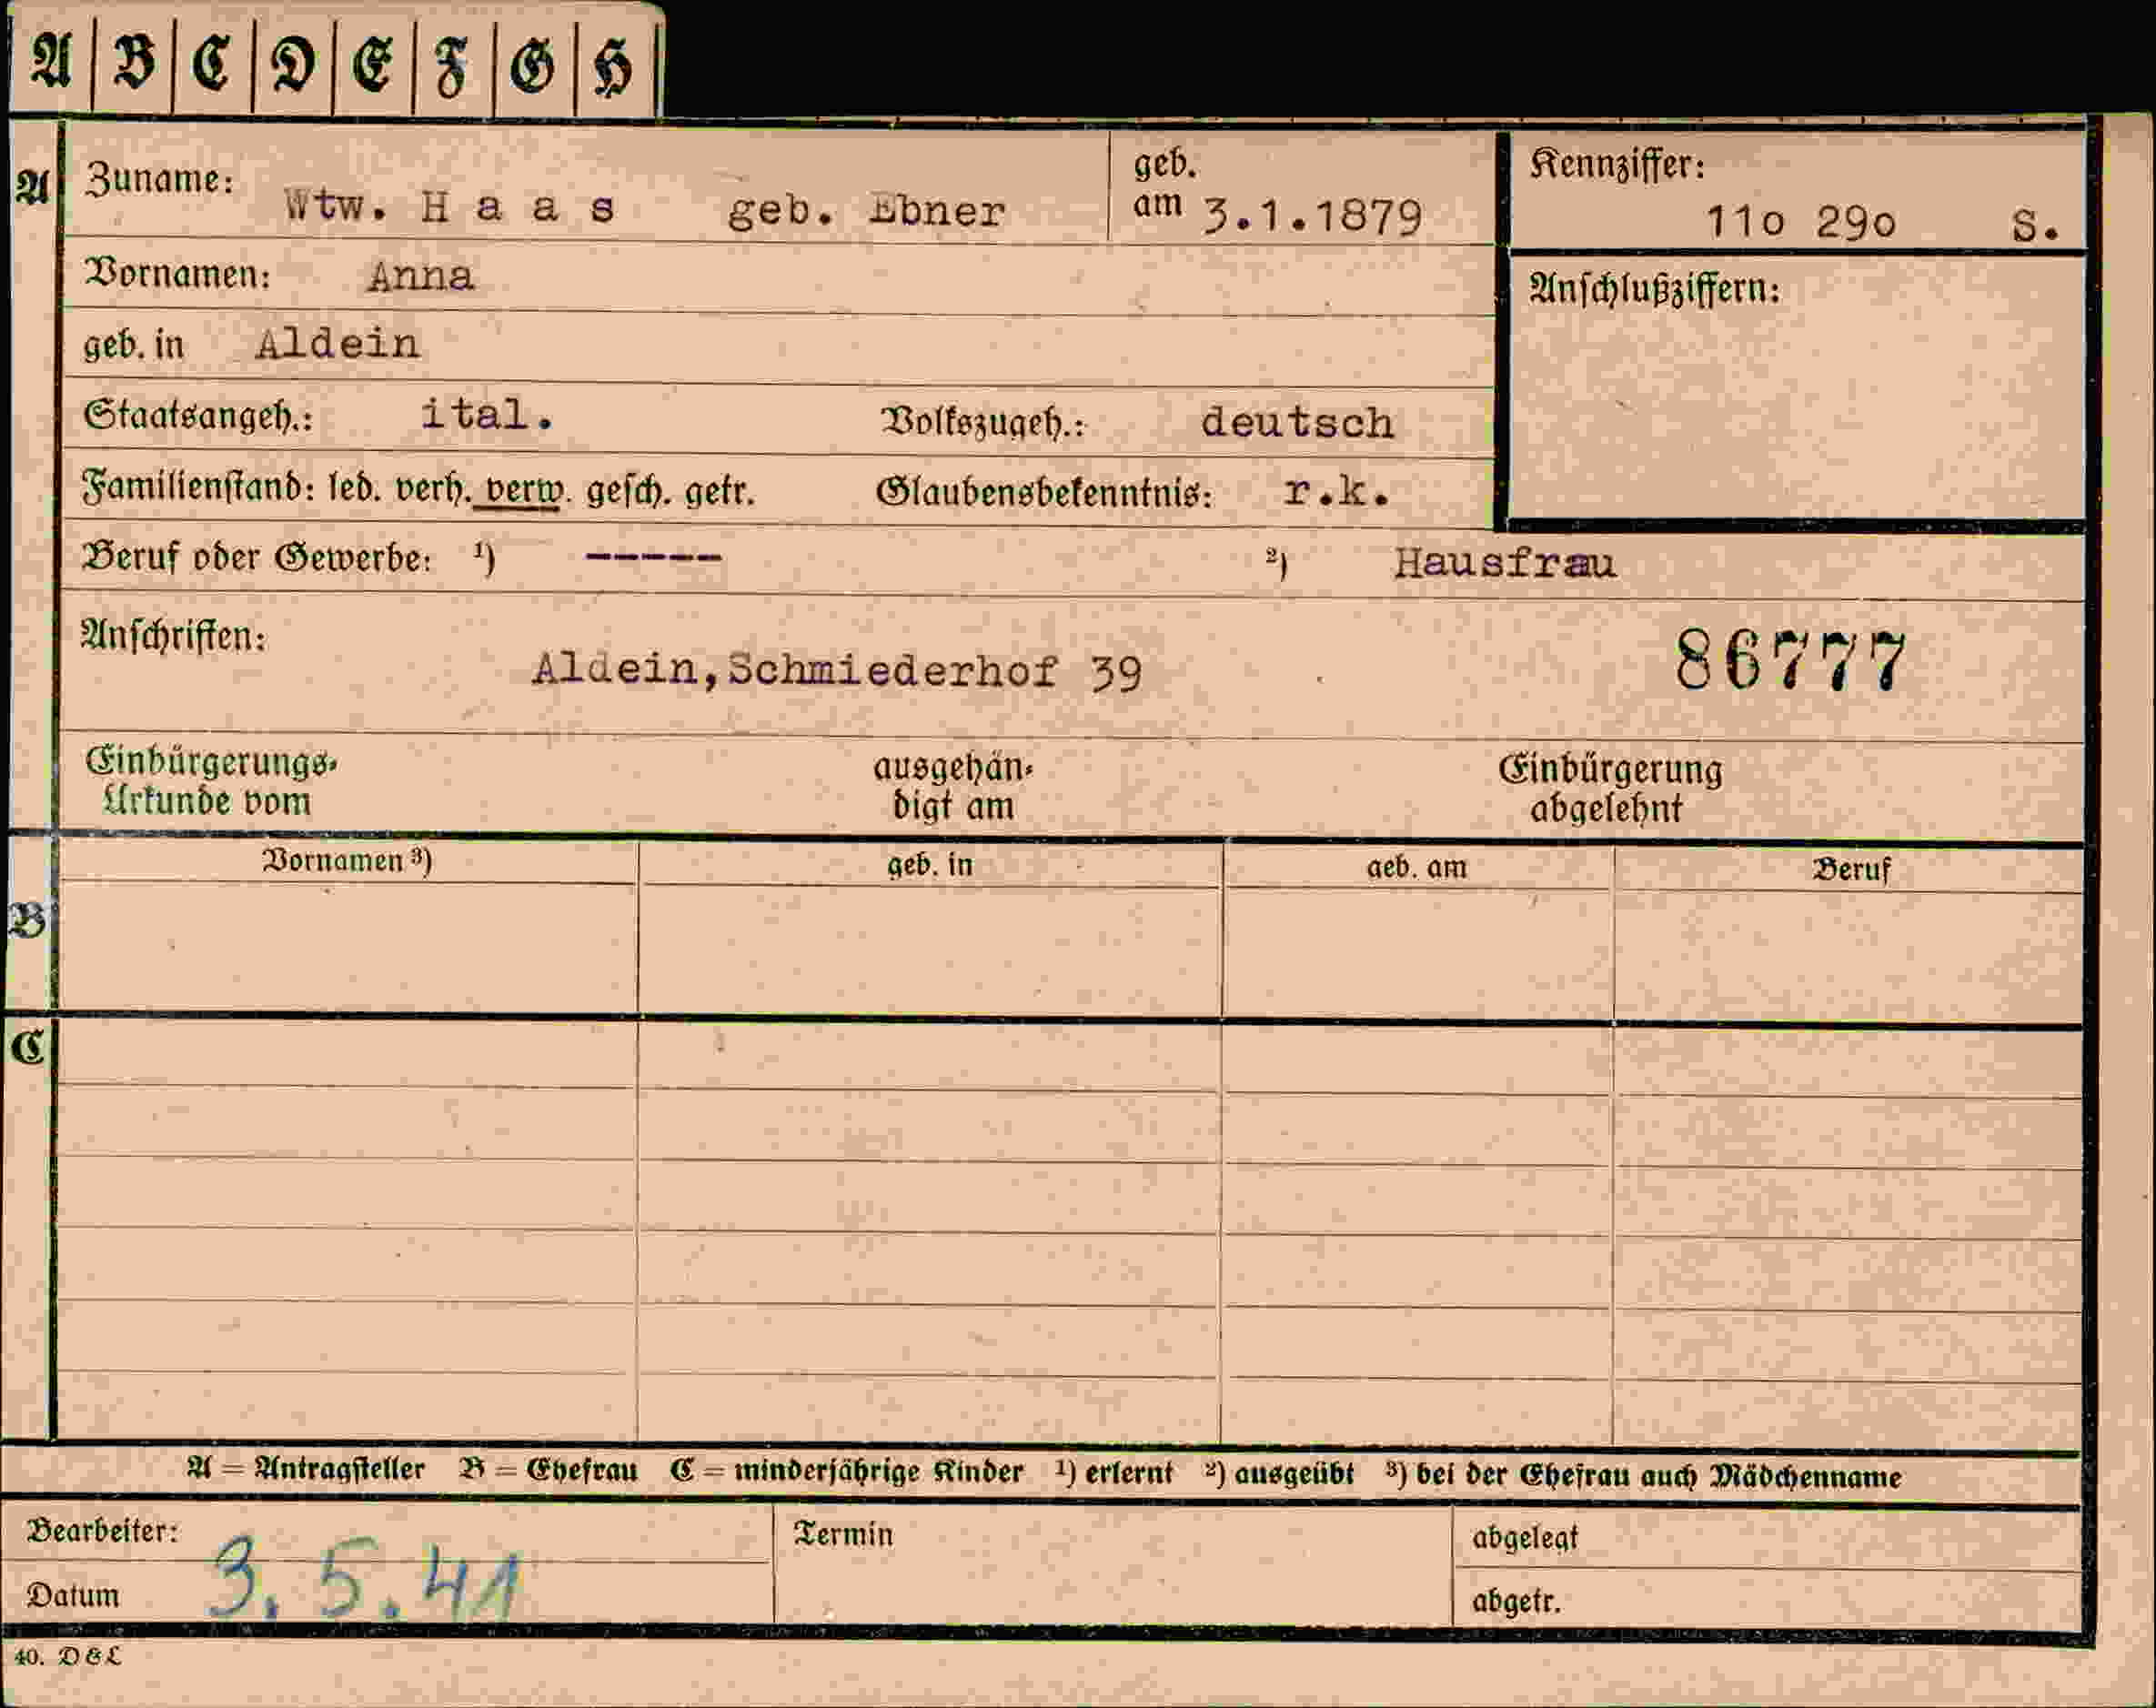 A B C D E F G H
A Zuname: Wtw. H a a s geb. Ebner geb. am 3.1.1879 Kennziffer: 11o 29o S.
Vornamen: Anna Anschlußziffern:
geb. in Aldein
Staatsangeh.: ital. Volkszugeh.: deutsch
Familienstand: led. verh. verw. gesch. getr. Glaubensbekenntnis: r.k.
Beruf oder Gewerbe: ¹) ----- ²) Hausfrau
Anschriften: Aldein,Schmiederhof 39 86777
Einbürgerungs- ausgehän- Einbürgerung
Urkunde vom digt am abgelehnt
Vornamen ³) geb. in geb. am Beruf
B
C
A = Antragsteller B = Ehefrau C = minderjährige Kinder ¹) erlernt ²) ausgeübt ³) bei der Ehefrau auch Mädchenname
Bearbeiter: Termin abgelegt
Datum 3.5.41 abgetr.
40. D & L